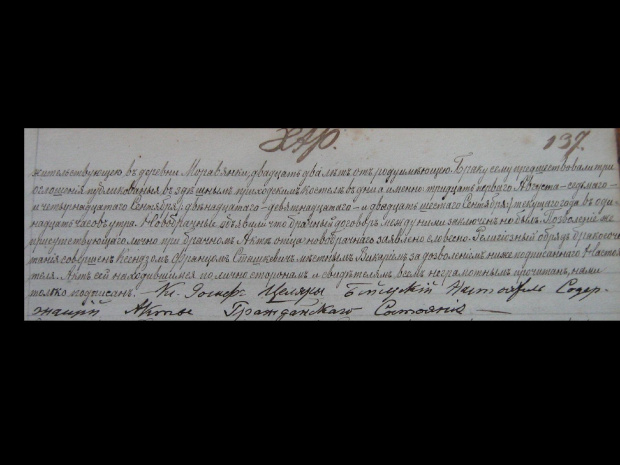 137.
жительствующею въ деревни Моравянки, двадцать два лѣтъ отъ роду имѣющую. Браку сему предшествовали три
оглашенія публикованныя въ здѣшнымъ приходскимъ костелѣ въ дни а именно: тридцать перваго Августа — седьмаго —
и четырнадцатаго Сентября / двѣнадцатаго — девятнадцатаго — и двадцать шестаго Сентября / текущаго года въ оди-
надцать часовъ утра. Новобрачные объявили что брачный договоръ между ними заключенъ небылъ. Позволеніе же
присутствующаго лично при брачномъ Актѣ отца новобрачнаго заявлено словесно. Религіозный обрядъ бракосоче-
танія совершенъ Ксендзомъ Францомъ мѣстнымъ Викаріемъ за дозволеніемъ ниже подписаннаго Настоя-
теля. Актъ сей находившимся по лично сторонамъ и свидѣтелямъ всѣмъ неграмотнымъ прочитанъ, нами
только подписанъ. Кс. Настоятель Содер-
жащій Акты Гражданскаго Состоянія —